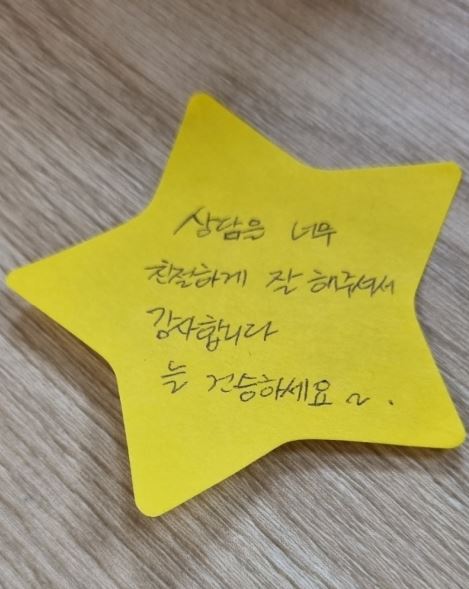 상담을 너무
친절하게 잘 해주셔서
감사합니다
늘 건승하세요 ~.